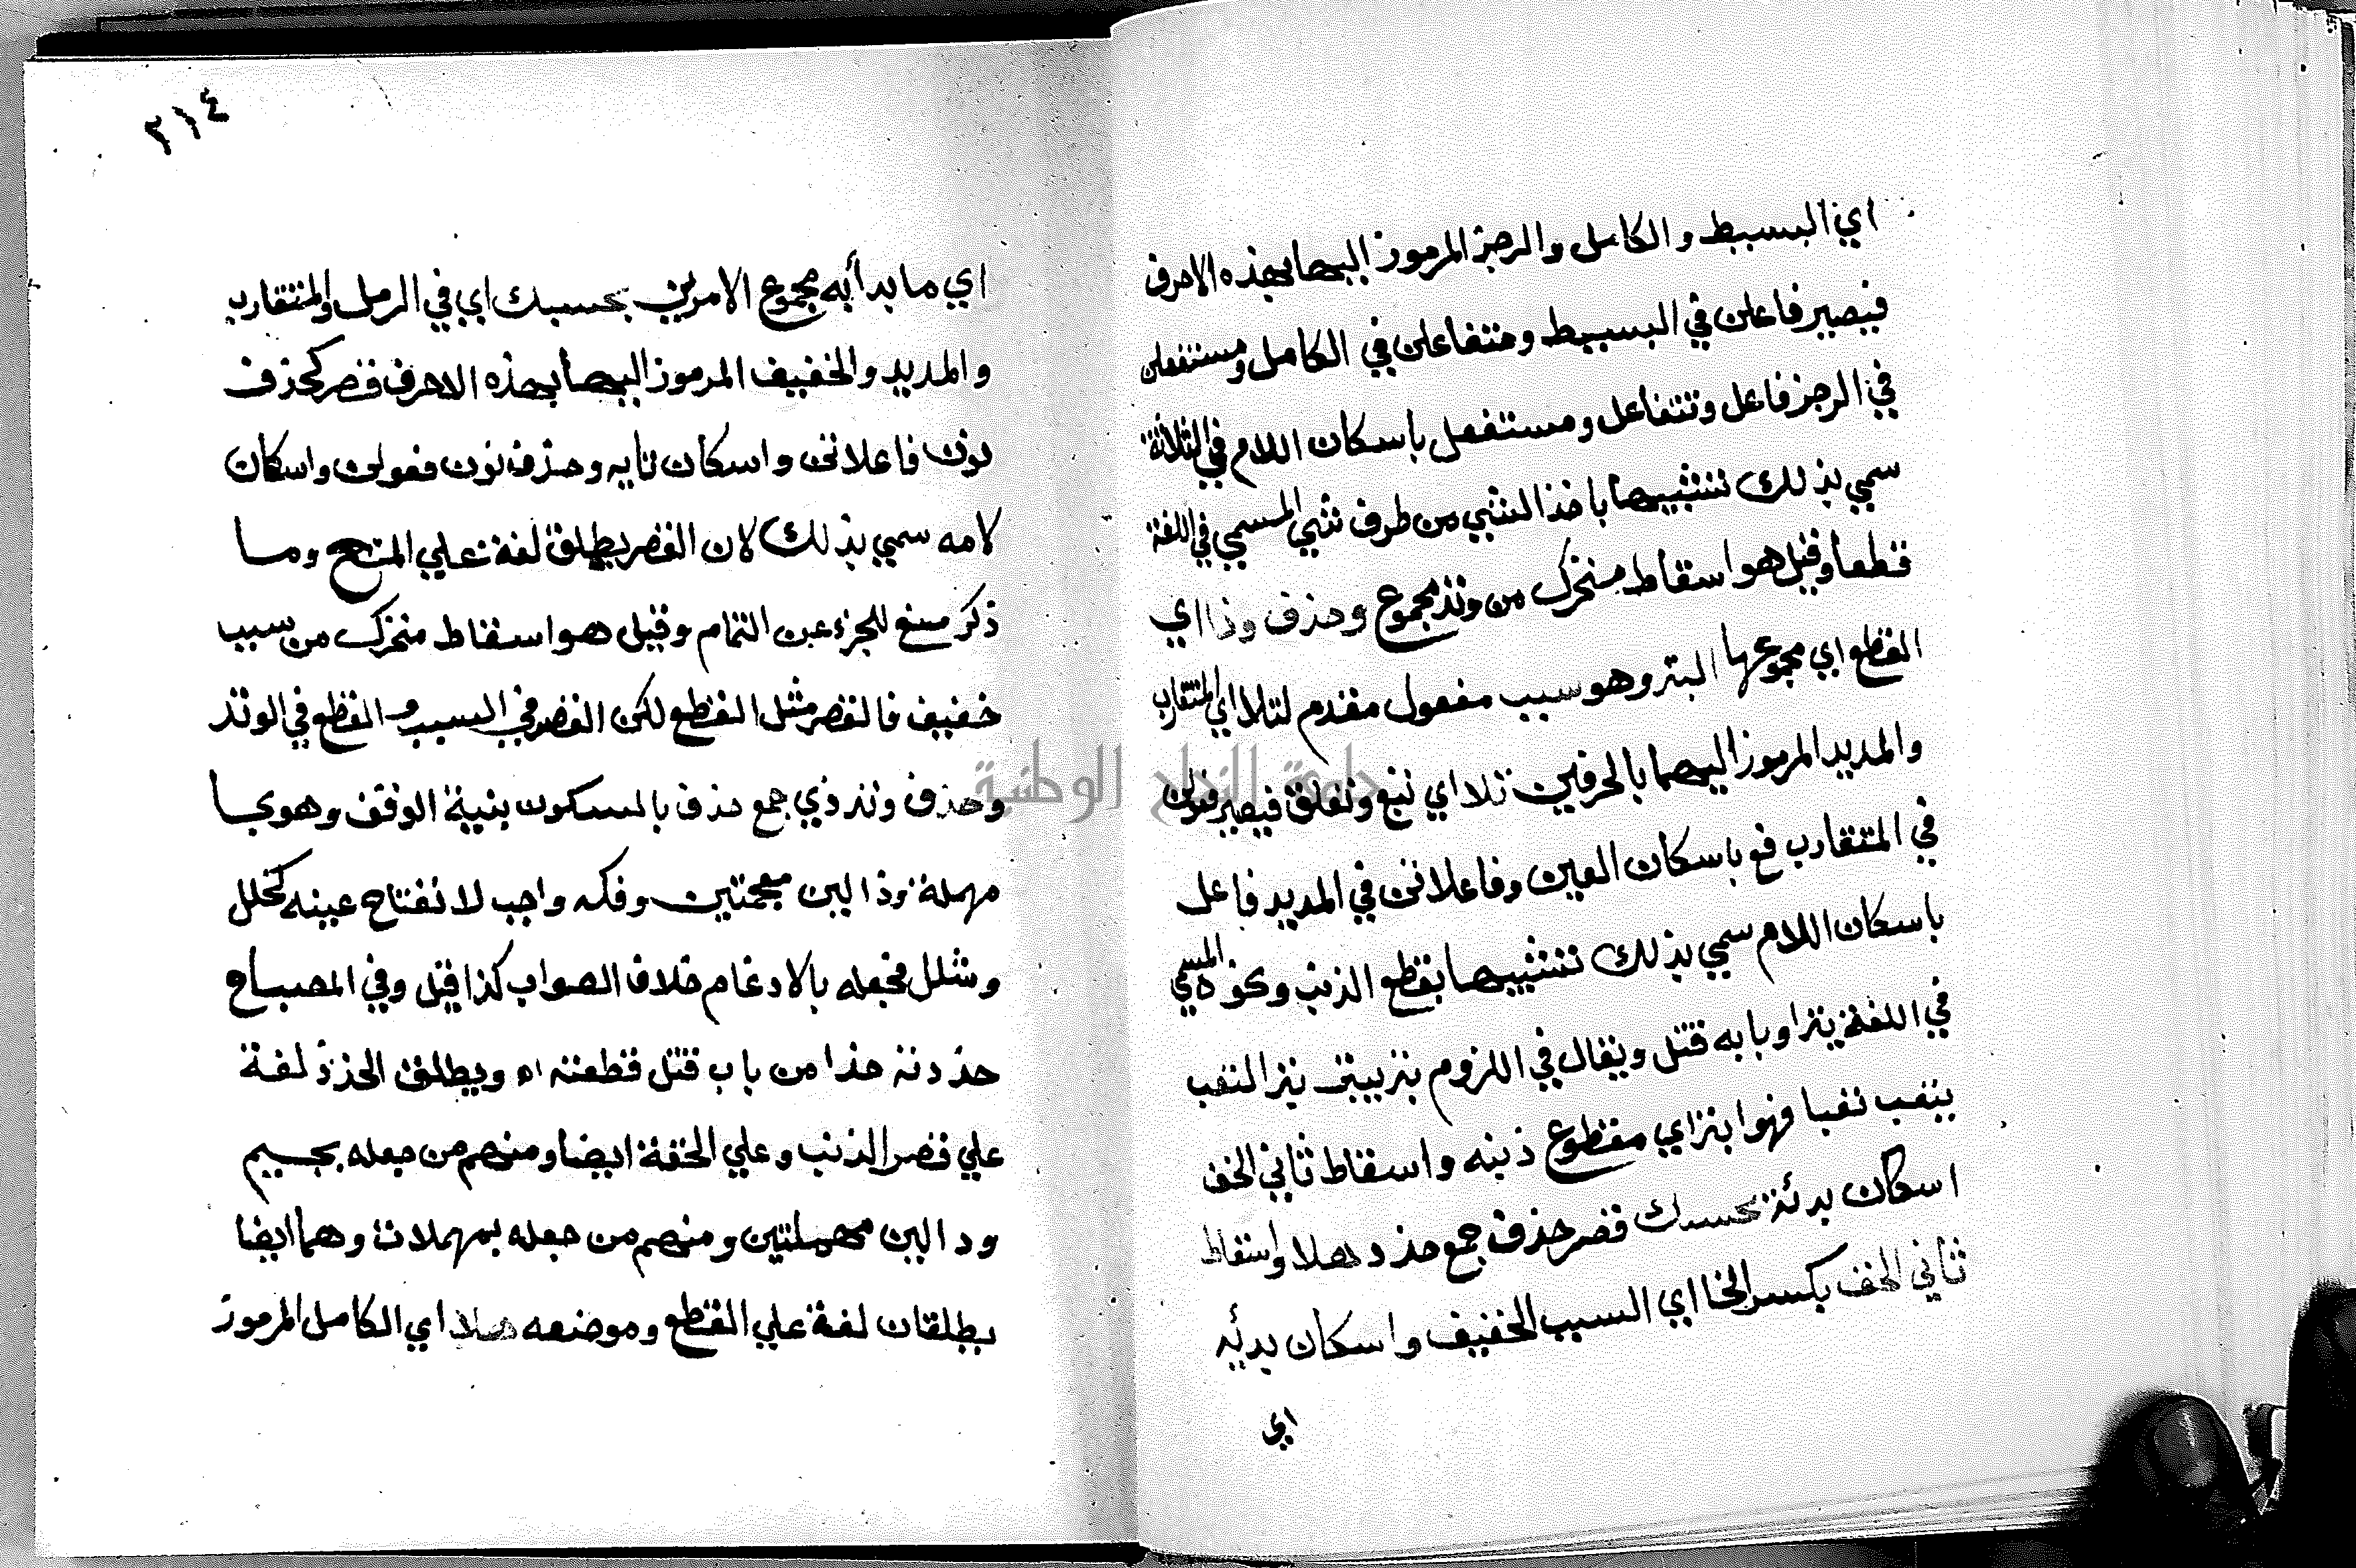 اي البسيط والكامل والرجز المرموز اليها بهذه الاحرف
فيصير فاعلن في البسيط ومتفاعلن في الكامل ومستفعلن
في الرجز فاعل ومتفاعل ومستفعل باسكان اللام في الثلاثة
سمي بذلك تشبيها باخذ الشي من طرف شي المسمي في اللغة
قطعا وقيل هو اسقاط متحرك من وتد مجموع وحذف وذا اي
القطع اي مجموعها البتر وهو سبب مفعول مقدم لتلا اي المتقارب
والمديد المرموز اليهما بالحرفين تلا اي تبع وتعلق فيصير فعولن
في المتقارب فع باسكان العين وفاعلاتن في المديد فاعل
باسكان اللام سمي بذلك تشبيها بقطع الذنب ونحوه المسمي
في اللغة بترا وبابه قتل ويقال في اللزوم بتر يبتر بتر التعب
يتعب تعبا فهو ابتر اي مقطوع ذنبه واسقاط ثاني الخف
اسكان بدئه بحسبك قصر حذف جمع حذذ دهلا واسقاط
ثاني الخف بكسر الخا اي السبب الخفيف واسكان بدئه
اي
٢١٤
اي ما بدأ به مجموع الامرين بحسبك اي في الرمل والمتقارب
والمديد والخفيف المرموز اليها بهذه الاحرف قصر كحذف
نون فاعلاتن واسكان تايه وحذف نون فعولن واسكان
لامه سمي بذلك لان القصر يطلق لغة علي المنع وما
ذكر منع للجزء عن التمام وقيل هو اسقاط متحرك من سبب
خفيف فالقصر مثل القطع لكن القصر في السبب والقطع في الوتد
وحذف وتد ذي جمع حذف بالسكون بنية الوقف وهو بحا
مهملة وذالين معجمتين وفكه واجب لانفتاح عينه كخلل
وشلل فجعله بالادغام خلاف الصواب كذا قيل وفي المصباح
حذذته حذا من باب قتل قطعته اه ويطلق الحذذ لغة
علي قصر الذنب وعلي الخفة ايضا ومنهم من جعله بجيم
ودالين مهملتين ومنهم من جعله بمهملات وهما ايضا
يطلقان لغة علي القطع وموضعه هلا اي الكامل المرموز
جامعة النجاح الوطنية